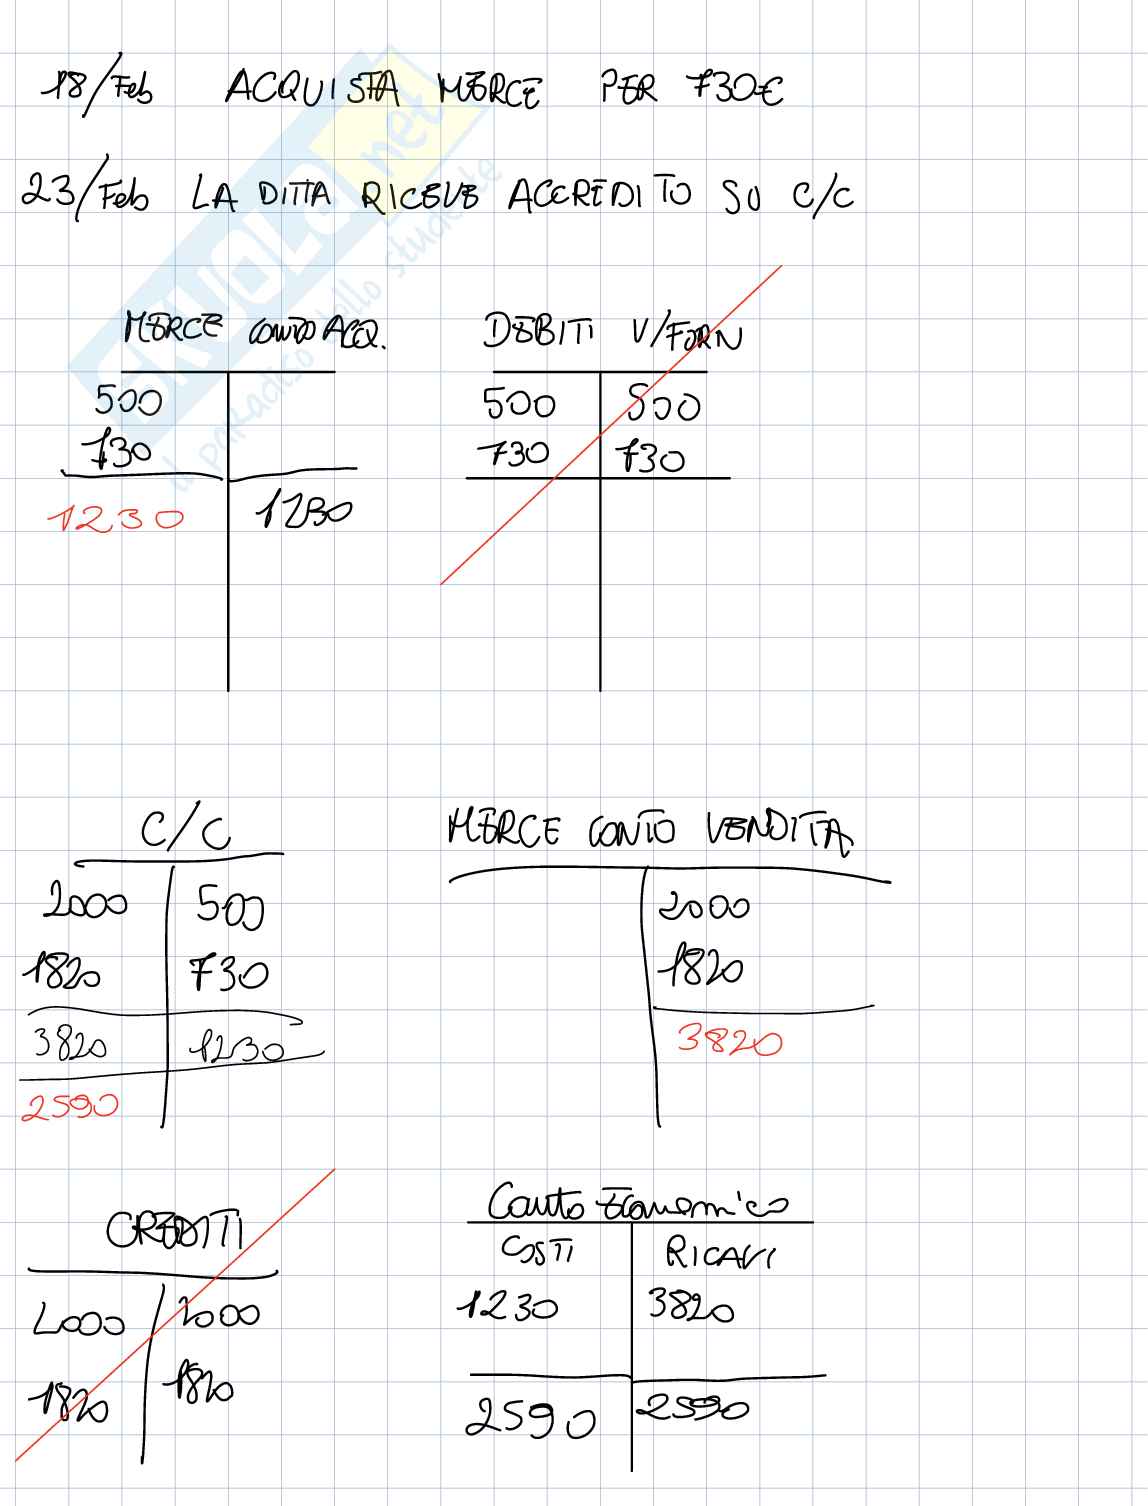 18/Feb ACQUISTA MERCE PER 730€
23/Feb LA DITTA RICEVE ACCREDITO SU C/C
MERCE CONTO ACQ.
500
730
1230 1230
DEBITI V/FORN
500 500
730 730
C/C
2000 500
1820 730
3820 1230
2590
MERCE CONTO VENDITA
2000
1820
3820
CREDITI
2000 2000
1820 1820
Conto Economico
COSTI RICAVI
1230 3820
2590 2590
SKUOLA.net
il paradiso dello studente